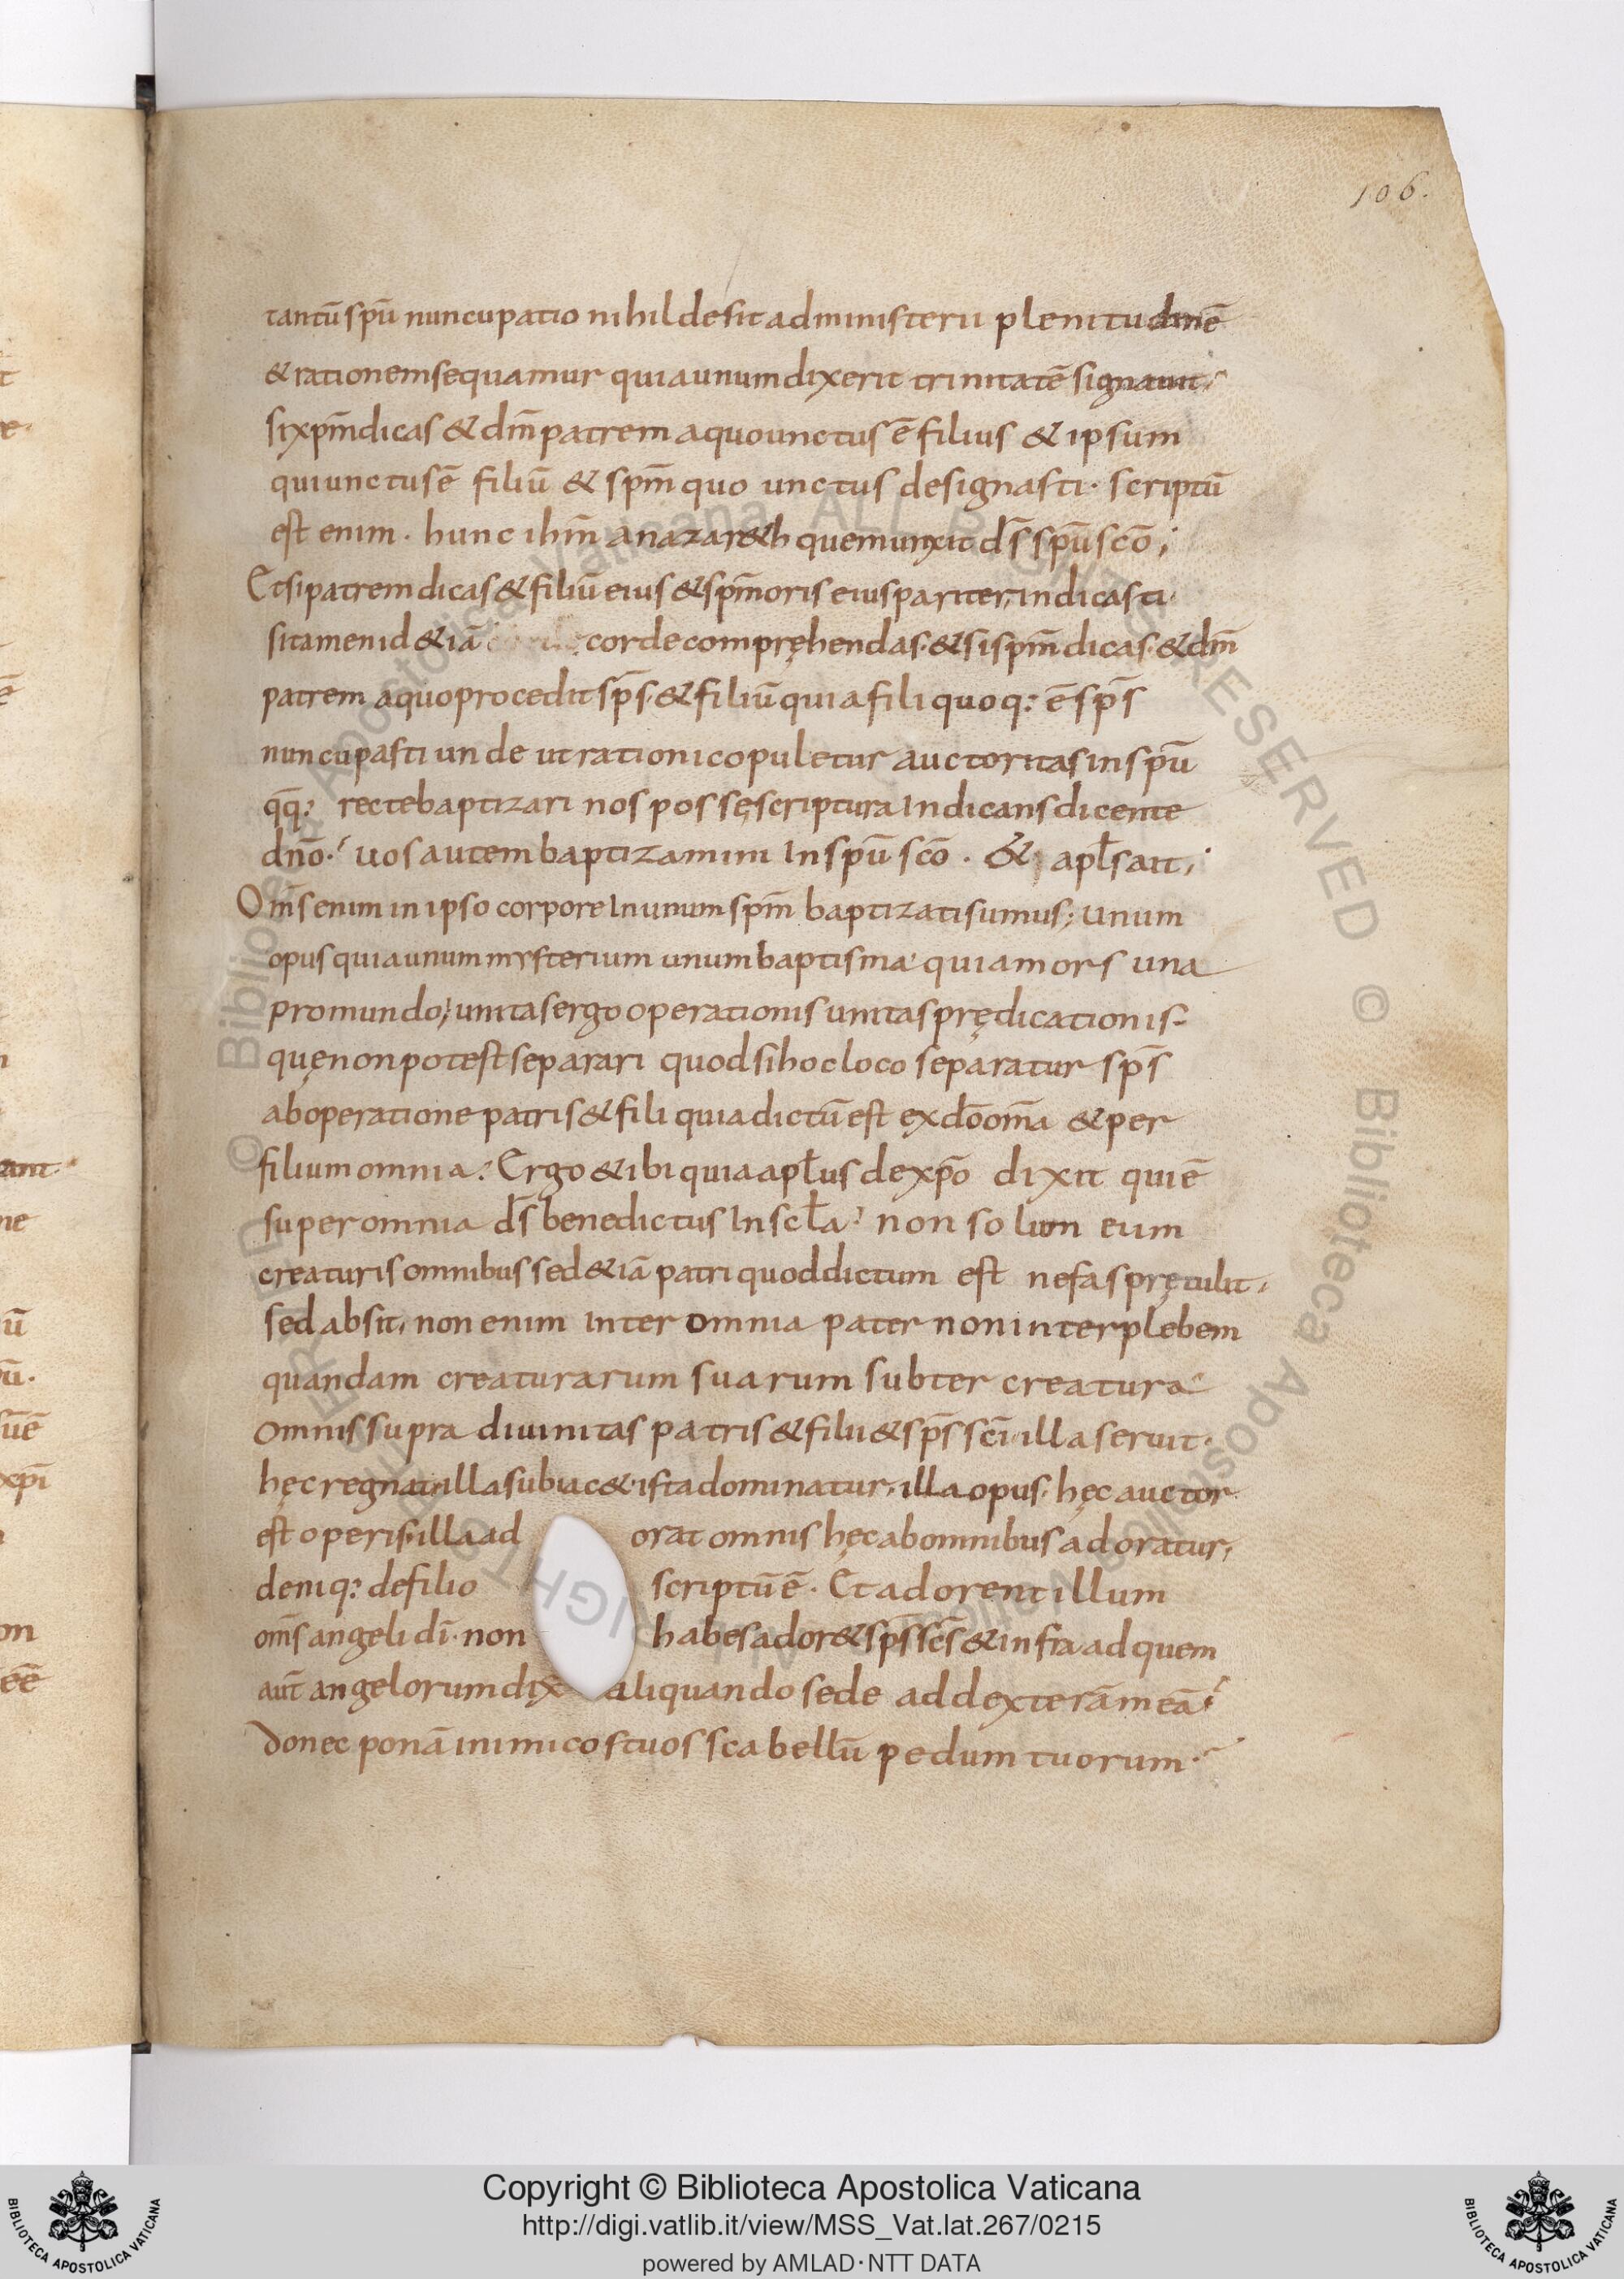 106.
tantū spū nuncupatio nihil desit ad ministerii plenitudinē
& rationem sequamur quia unum dixerit trinitatē signauit;
si xp̄m dicas & dm̄ patrem a quo unctus ē filius & ipsum
qui unctus ē filiū & spm̄ quo unctus designasti· scriptū
est enim· hunc ihm̄ a nazar&h quem unxit ds̄ spū scō;
Et si patrem dicas & filiū eius & spm̄ oris eius pariter indicasti·
si tamen id &iā corde compręhendas·& si spm̄ dicas·& dm̄
patrem a quo procedit sps̄·& filiū quia fili quoq: ē sps̄
nuncupasti unde ut rationi copuletur auctoritas in spū
qq̄: recte baptizari nos possę scriptura Indicans dicente
dnō· uos autem baptizamini In spū scō· & apl̄s ait;
Om̄s enim in ipso corpore In unum spm̄ baptizati sumus; Unum
opus quia unum mysterium unum baptisma quia mors una
pro mundo; unitas ergo operationis unitas prędicationis·
quę non potest separari quod si hoc loco separatur sps̄
ab operatione patris & fili quia dictū est ex dō om̄a & per
filium omnia: Ergo & ibi quia apl̄us de xp̄o dixit qui ē
super omnia ds̄ benedictus In scl̄a: non solum eum
creaturis omnibus sed &iā patri quod dictum est nefas prętulit·
sed absit, non enim Inter omnia pater non inter plebem
quandam creaturarum suarum subter creatura
omnis supra diuinitas patris & filii & sps̄ scī· illa seruit·
hęc regnat· illa subiac&· ista dominatur, illa opus· hęc auctor
est operis· illa ad orat omnis hęc ab omnibus adoratur,
deniq: de filio scriptū ē· Et adorent illum
om̄s angeli dī· non habes ador& sps̄ scs̄ & infra ad quem
aut̄ angelorum dix̄ aliquando sede ad dexterā meā
donec ponā inimicos tuos scabellū pedum tuorum·
Copyright © Biblioteca Apostolica Vaticana
http://digi.vatlib.it/view/MSS_Vat.lat.267/0215
powered by AMLAD·NTT DATA
BIBLIOTECA APOSTOLICA VATICANA
BIBLIOTECA APOSTOLICA VATICANA